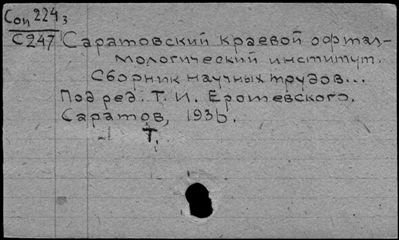 Соц 224з
С247
Саратовский краевой офтал-
мологический институт.
Сборник научных трудов...
Под ред. Т. И. Ерошевского.
Саратов, 1936.
Т.